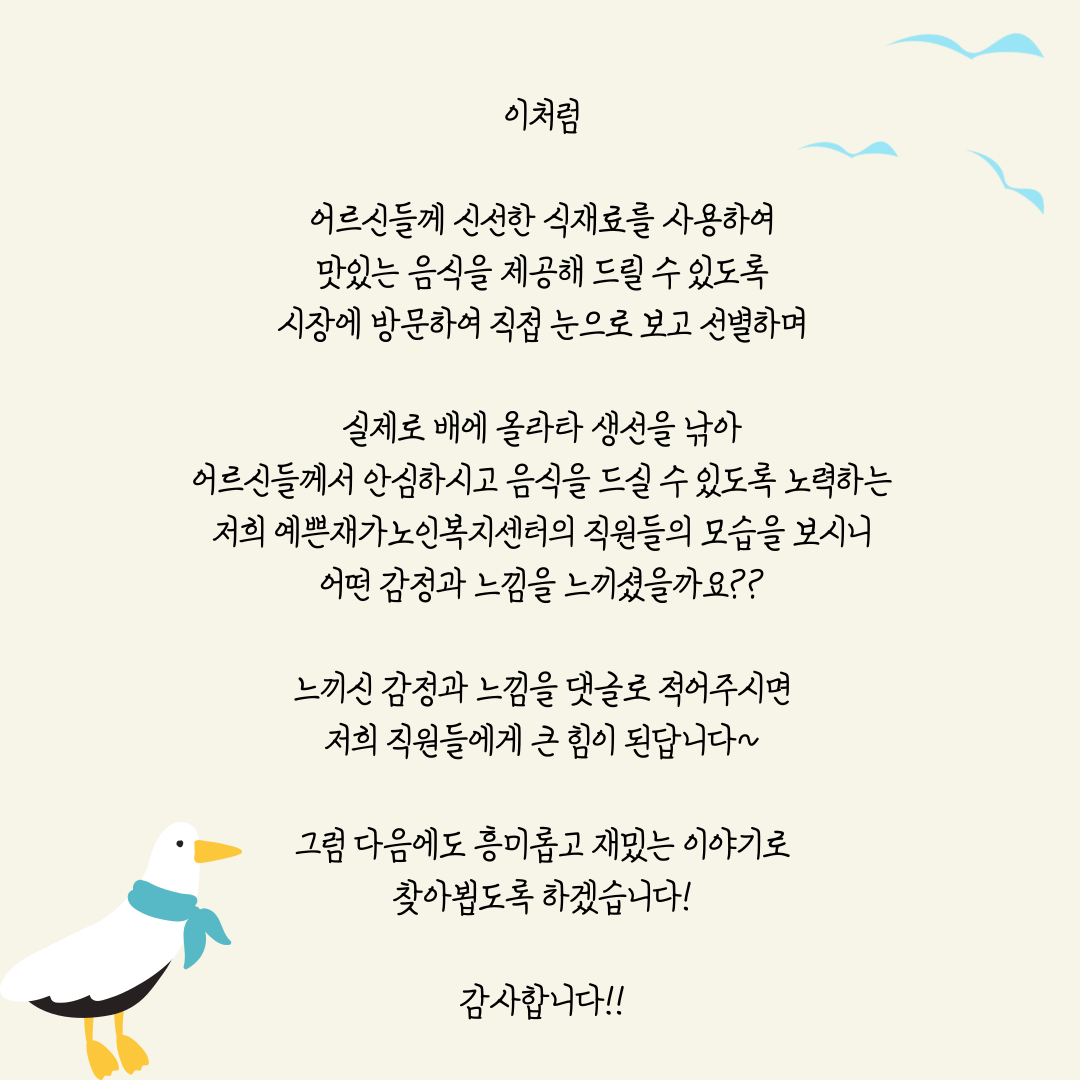 이처럼
어르신들께 신선한 식재료를 사용하여
맛있는 음식을 제공해 드릴 수 있도록
시장에 방문하여 직접 눈으로 보고 선별하며
실제로 배에 올라타 생선을 낚아
어르신들께서 안심하시고 음식을 드실 수 있도록 노력하는
저희 예쁜재가노인복지센터의 직원들의 모습을 보시니
어떤 감정과 느낌을 느끼셨을까요??
느끼신 감정과 느낌을 댓글로 적어주시면
저희 직원들에게 큰 힘이 된답니다~
그럼 다음에도 흥미롭고 재밌는 이야기로
찾아뵙도록 하겠습니다!
감사합니다!!